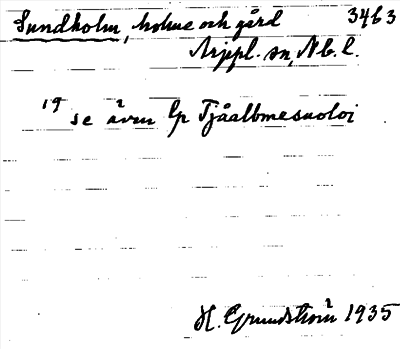 Sundholm, holme och gård 3463
Arjepl. sn, Nb. l.
19 se även lp Tjåalbmesuoloj
H. Grundström 1935